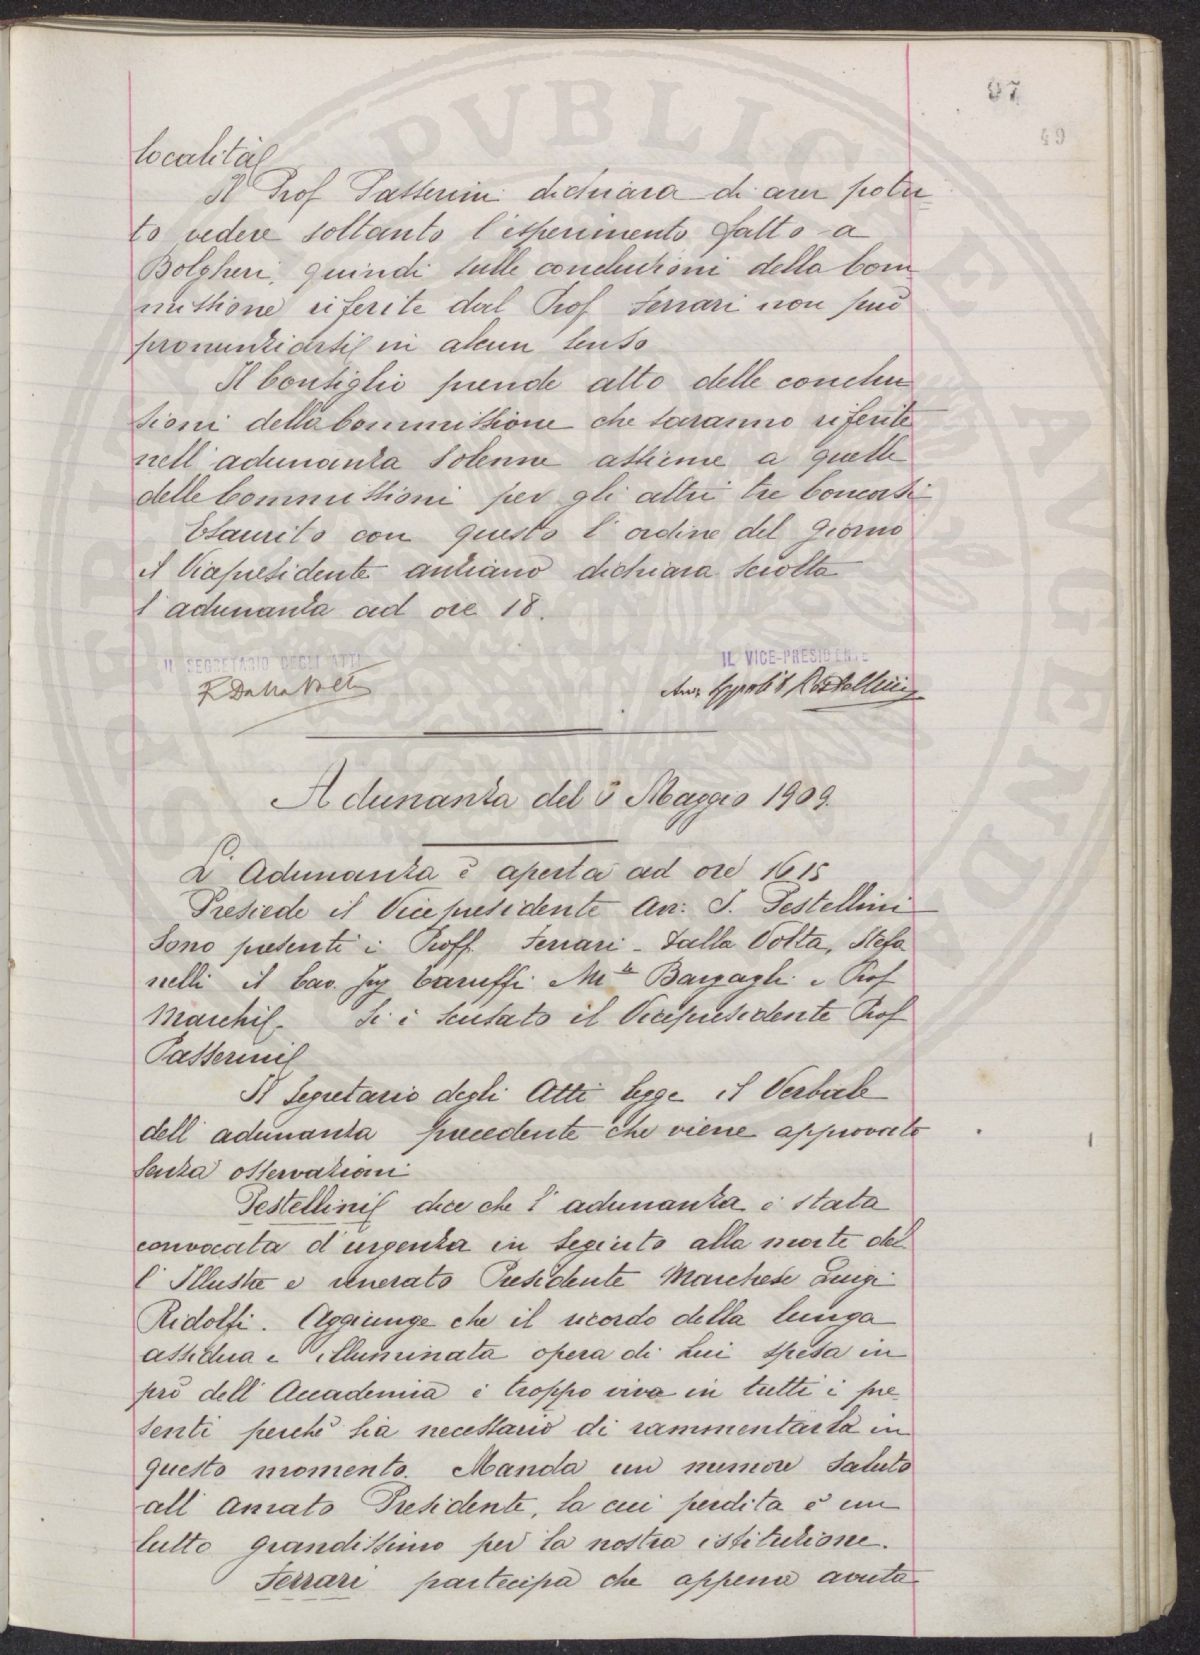 97
49
località
Il Prof Passerini dichiara di aver potu-
to vedere soltanto l'esperimento fatto a
Bolgheri, quindi sulle conclusioni della Com
missione riferite dal Prof Ferrari non può
pronunziarsi in alcun senso
Il Consiglio prende atto delle conclu
sioni della Commissione che saranno riferite
nell'adunanza solenne assieme a quelle
delle Commissioni per gli altri tre Concorsi
Esaurito con questo l'ordine del giorno
il Vicepresidente anziano dichiara sciolta
l'adunanza ad ore 18.
IL SEGRETARIO DEGLI ATTI
IL VICE-PRESIDENTE
R Dalla Volta
Pestellini
Adunanza del Maggio 1909.
L'Adunanza è aperta ad ore 16 15
Presiede il Vicepresidente Avv: I. Pestellini
Sono presenti i Proff. Ferrari - Dalla Volta, Stefa
nelli il Cav. Ing Caruffi Mse Bargagli e Prof
Marchi. Si è scusato il Vicepresidente Prof
Passerini
Il Segretario degli Atti legge il Verbale
dell'adunanza precedente che viene approvato
senza osservazioni
Pestellini dice che l'adunanza è stata
convocata d'urgenza in seguito alla morte del
l'Illustre e venerato Presidente Marchese Luigi
Ridolfi. Aggiunge che il ricordo della lunga
assidua e illuminata opera di Lui spesa in
prò dell'Accademia è troppo viva in tutti i pre-
senti perchè sia necessario di rammentarla in
questo momento. Manda un memore saluto
all'amato Presidente, la cui perdita è un
lutto grandissimo per la nostra istituzione.
Ferrari partecipa che appena avuta